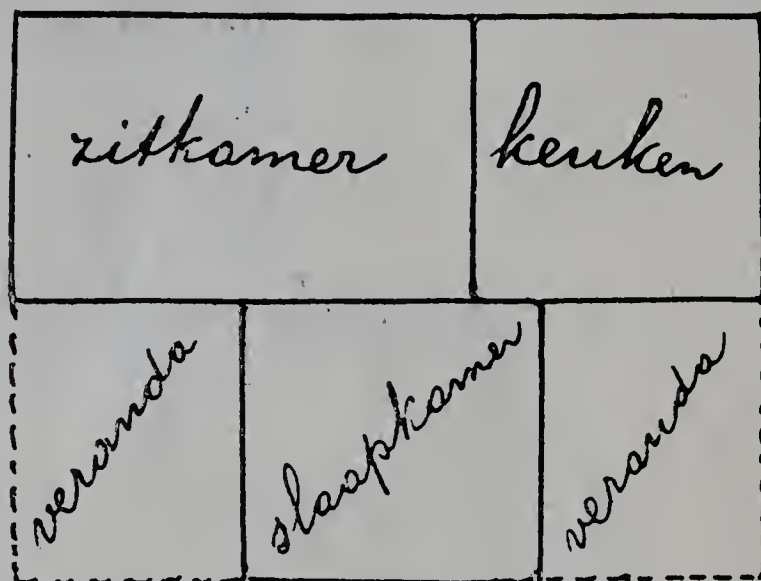 zitkamer
keuken
veranda
slaapkamer
veranda